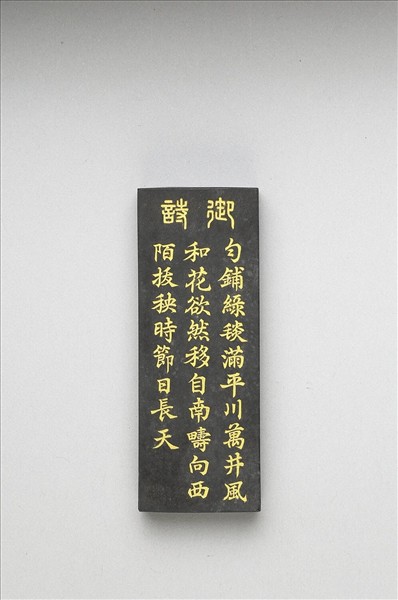 御詩
勻鋪綠毯滿平川萬井風
和花欲然移自南疇向西
陌拔秧時節日長天